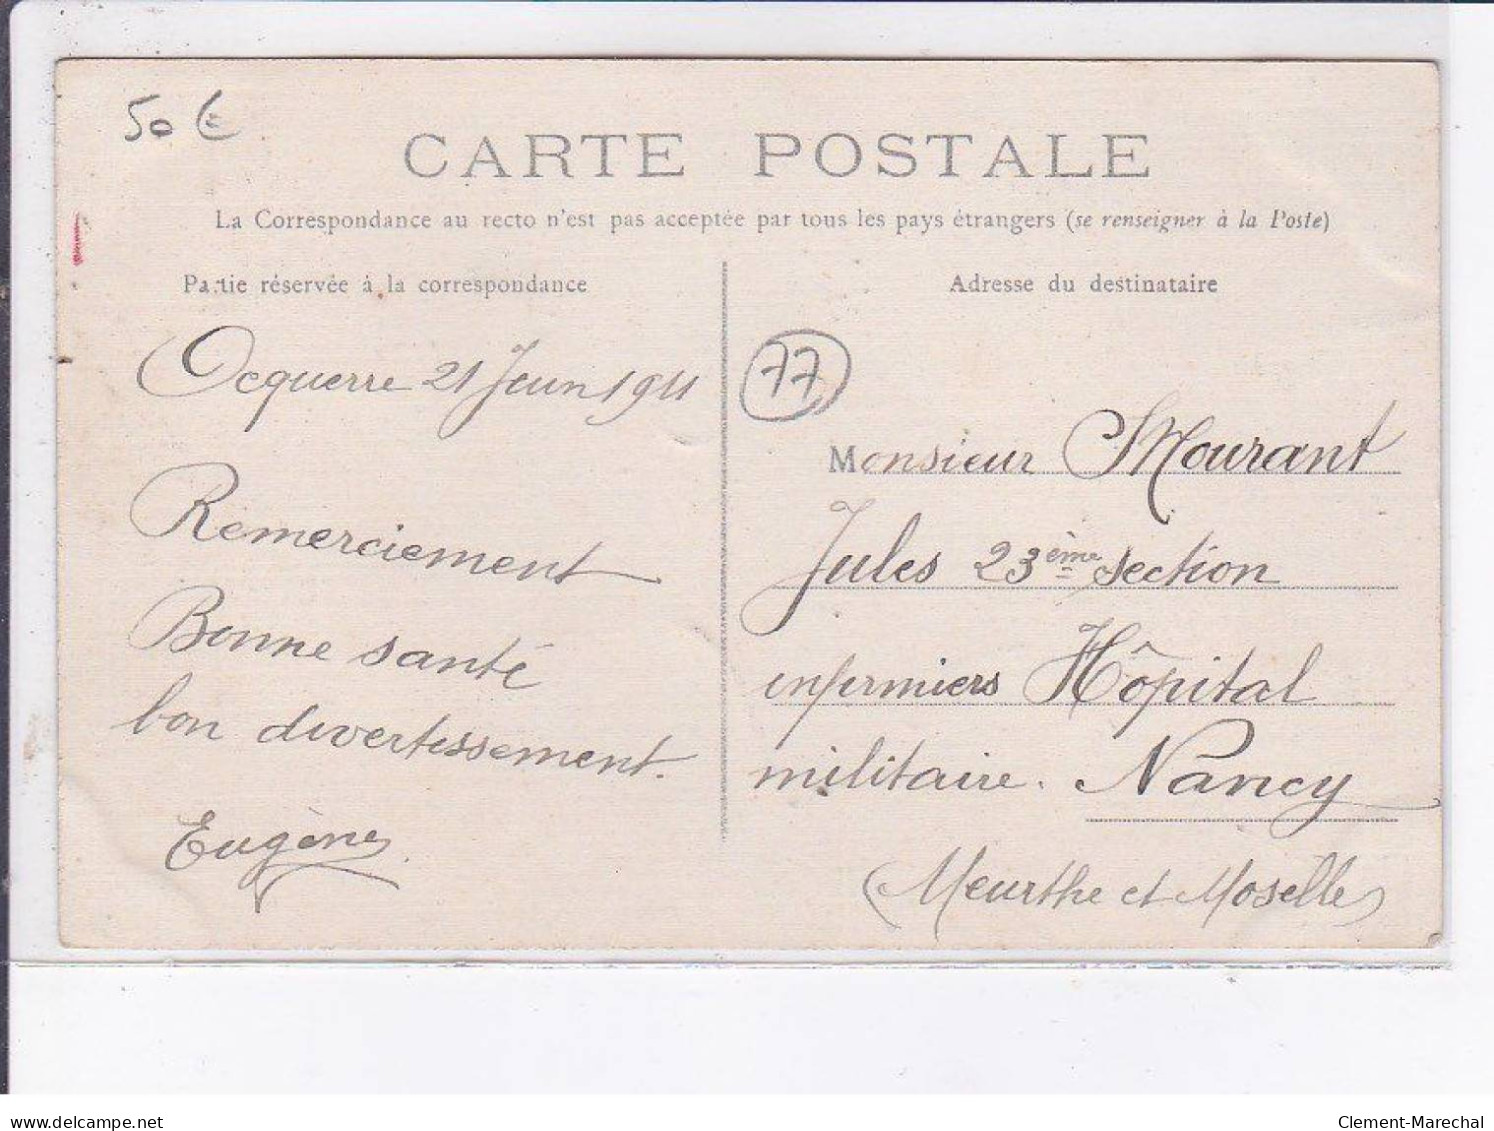 50 €
CARTE POSTALE
La Correspondance au recto n'est pas acceptée par tous les pays étrangers (se renseigner à la Poste)
Partie réservée à la correspondance
Ocquerre 21 Juin 1911
Remerciement
Bonne santé
bon divertissement.
Eugène
Adresse du destinataire
77
Monsieur Mourant
Jules 23ème section
infirmiers Hôpital
militaire. Nancy
(Meurthe et Moselle)
delcampe.net
Clement-Marechal